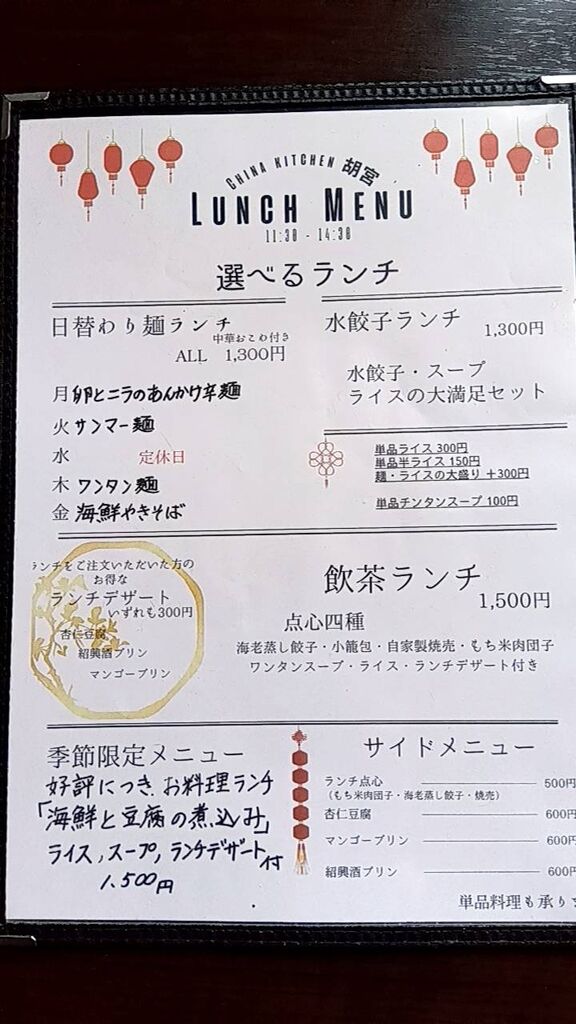 CHINA KITCHEN 胡宮
LUNCH MENU
11:30 - 14:30
選べるランチ
日替わり麺ランチ
中華おこわ付き
ALL 1,300円
月 卵とニラのあんかけ辛麺
火 サンマー麺
水 定休日
木 ワンタン麺
金 海鮮やきそば
水餃子ランチ 1,300円
水餃子・スープ
ライスの大満足セット
単品ライス 300円
単品半ライス 150円
麺・ライスの大盛り +300円
単品チンタンスープ 100円
ランチをご注文いただいた方の
お得な
ランチデザート
いずれも300円
杏仁豆腐
紹興酒プリン
マンゴープリン
飲茶ランチ
1,500円
点心四種
海老蒸し餃子・小籠包・自家製焼売・もち米肉団子
ワンタンスープ・ライス・ランチデザート付き
季節限定メニュー
好評につき お料理ランチ
「海鮮と豆腐の煮込み」
ライス,スープ,ランチデザート付
1,500円
サイドメニュー
ランチ点心 500円
(もち米肉団子・海老蒸し餃子・焼売)
杏仁豆腐 600円
マンゴープリン 600円
紹興酒プリン 600円
単品料理も承り